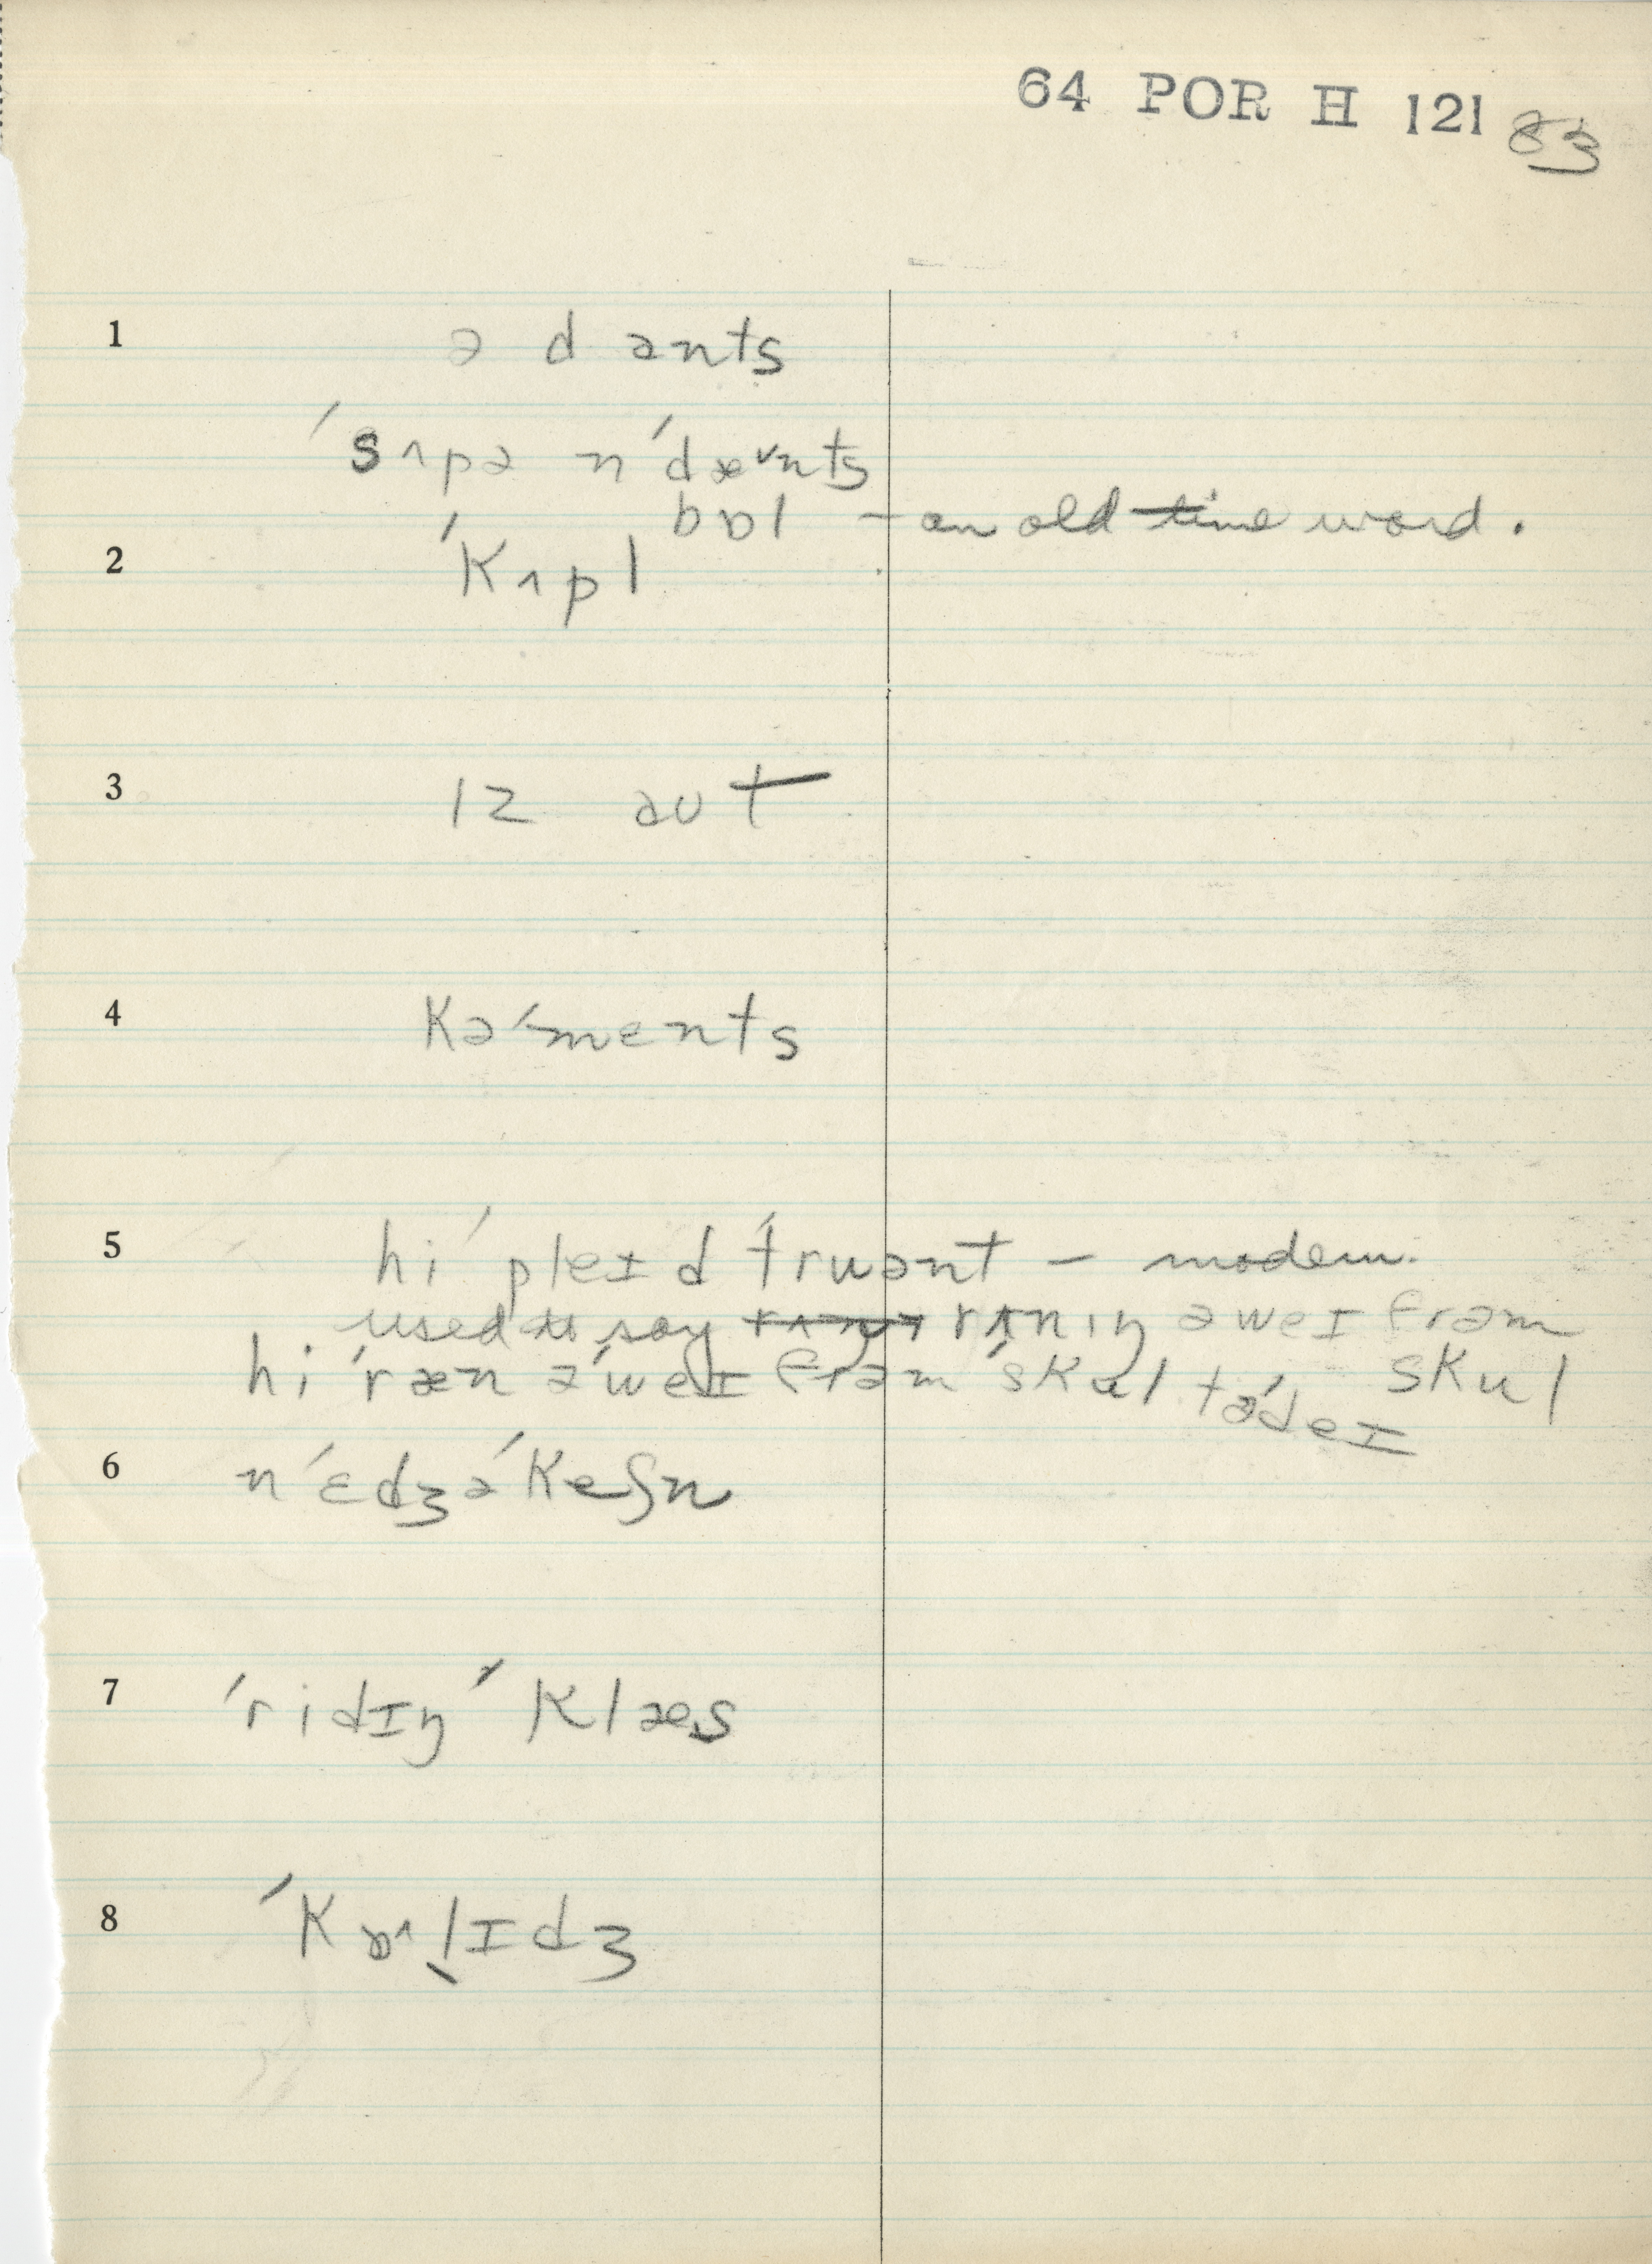 64 POR H 121 83
1 ə d ænts
ˈsʌpə nˈdæᵛnts
bɒl – an old time word.
2 ˈKʌpl
3 ɪz aʊt
4 Kəˈmɛnts
5 hiˈpleɪd ˈtruənt – modern.
used to say rʌnɪŋ əweɪ frəm
hi ˈræn əˈweɪ frəm ˈskul təˈdeɪ skul
6 nˈɛdʒəˈKeʃn
7 ˈridɪŋ ˈKlæs
8 ˈKɒ^lɪdʒ